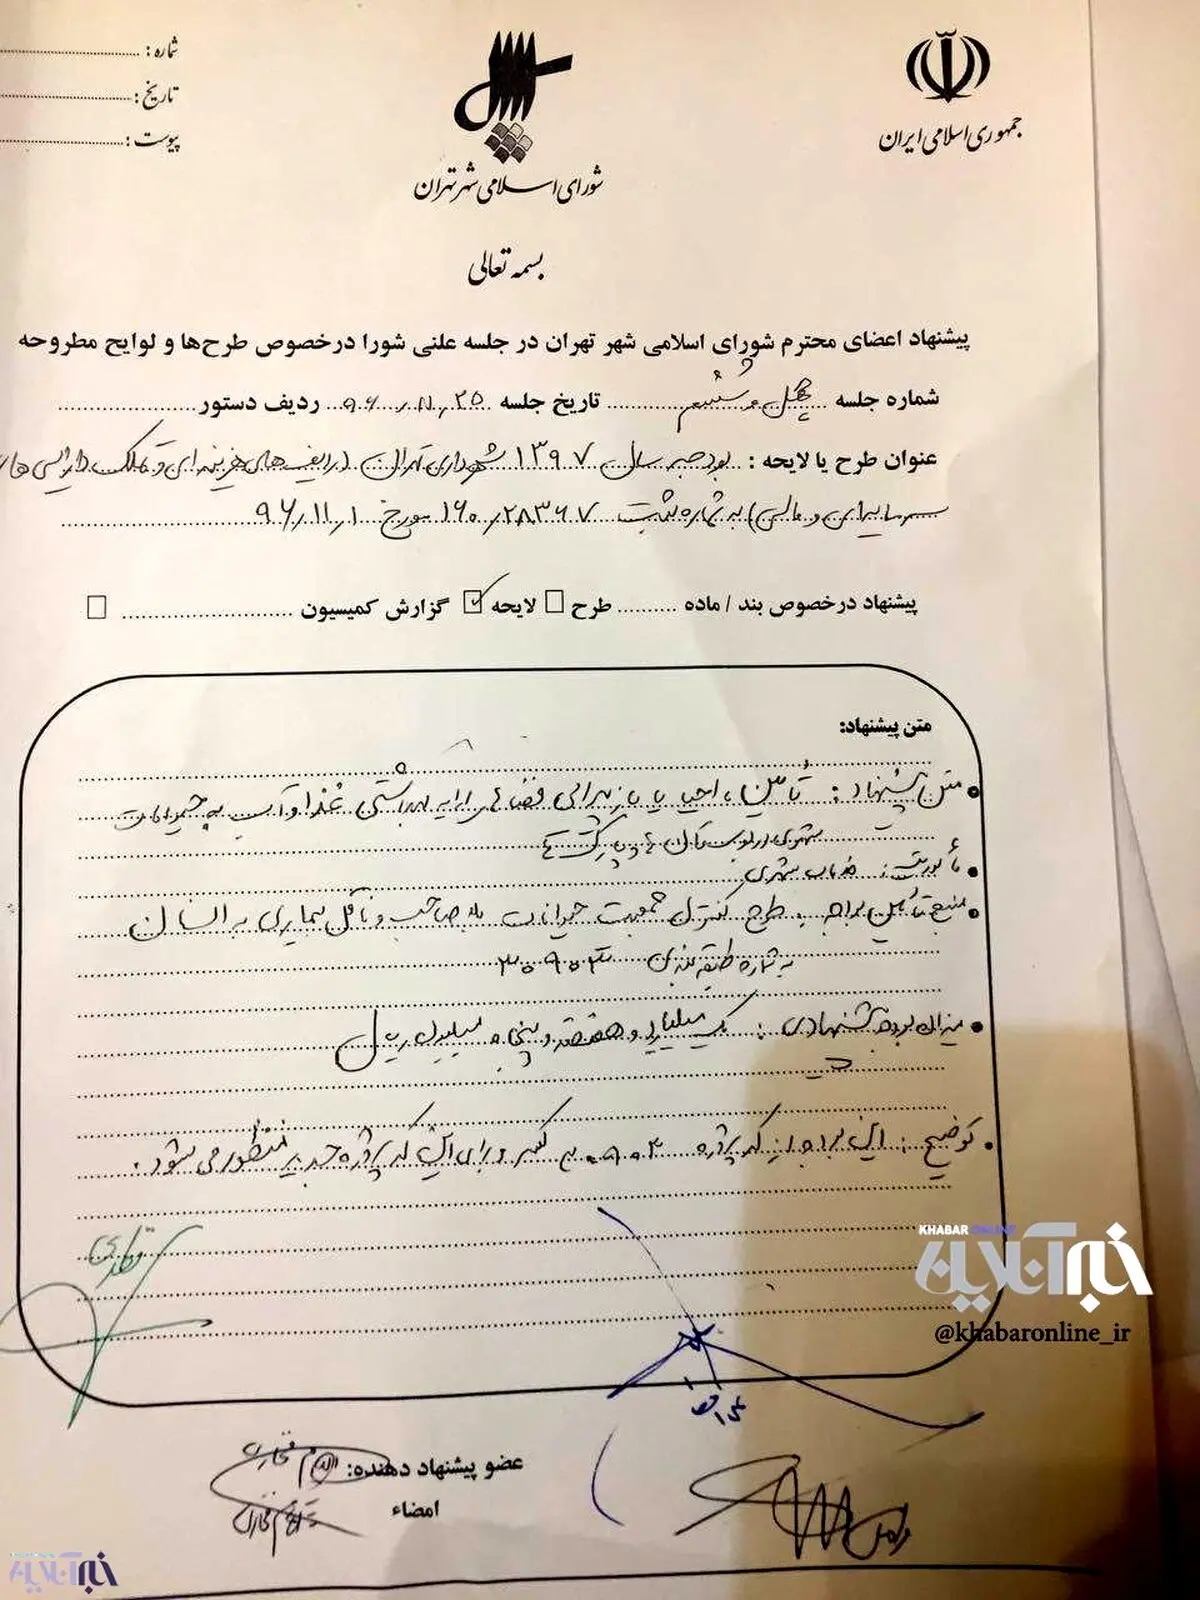 جمهوری اسلامی ایران
شورای اسلامی شهر تهران
شماره :
تاریخ :
پیوست :
بسمه تعالی
پیشنهاد اعضای محترم شورای اسلامی شهر تهران در جلسه علنی شورا درخصوص طرح‌ها و لوایح مطروحه
شماره جلسه چهل و ششم تاریخ جلسه ۹۶/۱۱/۲۵ ردیف دستور
عنوان طرح یا لایحه : بودجه سال ۱۳۹۷ شهرداری تهران (ردیف های هزینه ای و تملک دارایی های
سرمایه‌ای و مالی) به شماره ثبت ۱۶۰/۲۸۳۶۷ مورخ ۹۶/۱۱/۱
پیشنهاد درخصوص بند / ماده طرح لایحه گزارش کمیسیون
متن پیشنهاد:
متن پیشنهاد : تأمین، احیا یا بازپیرایی فضاهای ارایه بهداشتی غذا و آب به حیوانات
شهری در بوستان ها و پارک ها
مأموریت : خدمات شهری
منبع تأمین بودجه : طرح کنترل جمعیت حیوانات بلاصاحب و ناقل بیماری به انسان
به شماره طبقه بندی ۳۰۹۰۳
میزان بودجه پیشنهادی : یک میلیارد و هفتصد و پنجاه میلیون ریال
توضیح : این بودجه از کد پروژه ۳۰۹۰۳ کسر و برای آن کد پروژه جدید منظور می شود .
عضو پیشنهاد دهنده:
امضاء
KHABAR ONLINE
خبرآنلاین
@khabaronline_ir
خبرآنلاین